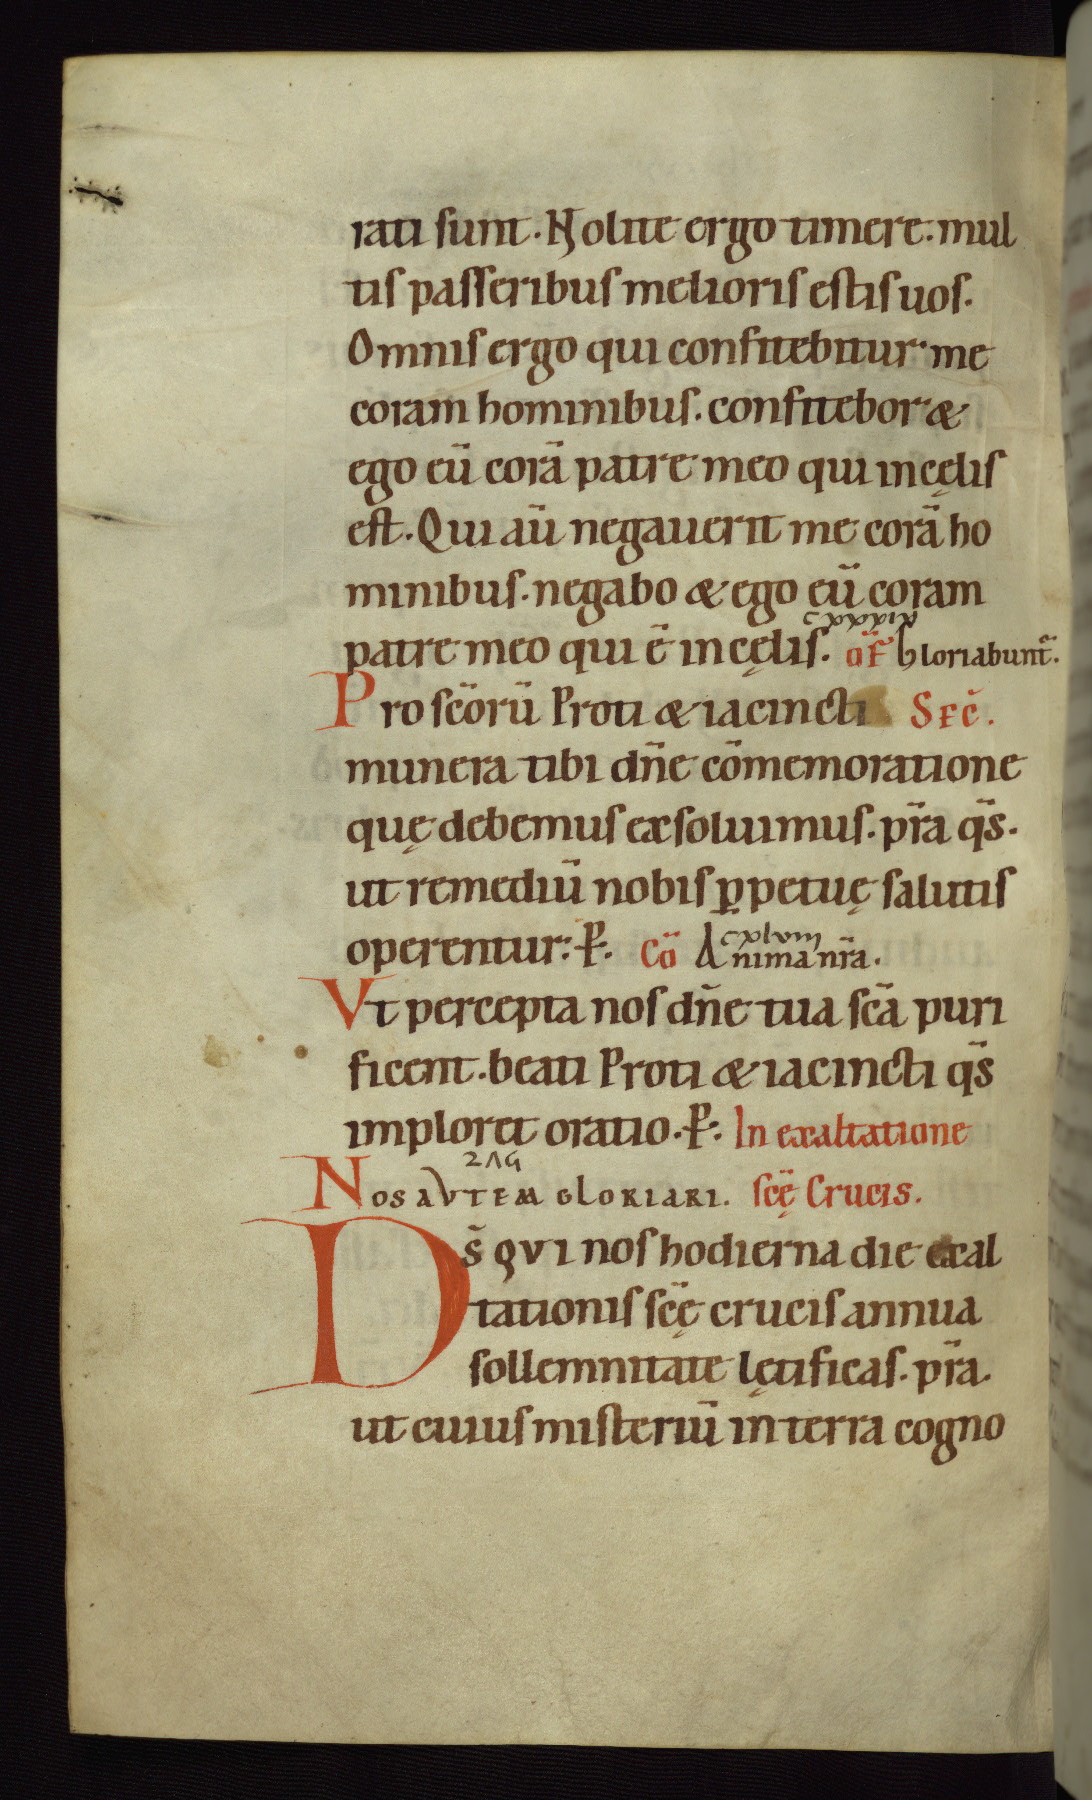 rati sunt. Nolite ergo timere. mul
tis passeribus melioris estis uos.
Omnis ergo qui confitebitur me
coram hominibus. confitebor &
ego eū corā patre meo qui in cęlis
est. Qui aū negauerit me corā ho
minibus. negabo & ego eū coram
patre meo qui ē in cęlis. Of̄ Gloriabunt̄.
Pro sc̄orū Proti & iacincti Sec̄.
munera tibi dn̄e cōmemoratione
quę debemus exsoluimus. pr̄a q̄s.
ut remediū nobis ꝑpetuę salutis
operentur. P. Cō Anima nr̄a.
Vt percepta nos dn̄e tua sc̄a puri
ficent. beati Proti & iacincti q̄s
imploret oratio. P. In exaltatione
Nos autem gloriari. sc̄ę Crucis.
Ds̄ qui nos hodierna die exal
tationis sc̄ę crucis annua
sollemnitate lętificas. pr̄a.
ut cuius misteriū in terra cogno